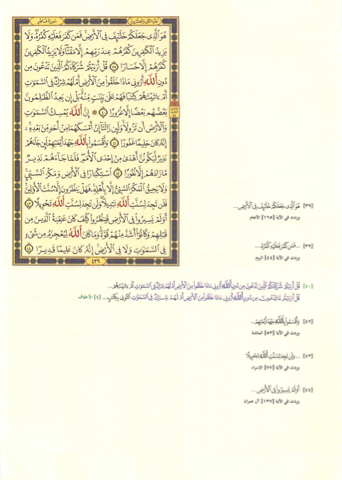 هُوَ ٱلَّذِى جَعَلَكُمْ خَلَٰٓئِفَ فِى ٱلْأَرْضِ فَمَن كَفَرَ فَعَلَيْهِ كُفْرُهُۥ وَلَا
يَزِيدُ ٱلْكَٰفِرِينَ كُفْرُهُمْ عِندَ رَبِّهِمْ إِلَّا مَقْتًا وَلَا يَزِيدُ ٱلْكَٰفِرِينَ
كُفْرُهُمْ إِلَّا خَسَارًا ٣٩ قُلْ أَرَءَيْتُمْ شُرَكَآءَكُمُ ٱلَّذِينَ تَدْعُونَ مِن
دُونِ ٱللَّهِ أَرُونِى مَاذَا خَلَقُوا۟ مِنَ ٱلْأَرْضِ أَمْ لَهُمْ شِرْكٌ فِى ٱلسَّمَٰوَٰتِ
أَمْ ءَاتَيْنَٰهُمْ كِتَٰبًا فَهُمْ عَلَىٰ بَيِّنَتٍ مِّنْهُ بَلْ إِن يَعِدُ ٱلظَّٰلِمُونَ
بَعْضُهُم بَعْضًا إِلَّا غُرُورًا ٤٠ إِنَّ ٱللَّهَ يُمْسِكُ ٱلسَّمَٰوَٰتِ
وَٱلْأَرْضَ أَن تَزُولَا وَلَئِن زَالَتَآ إِنْ أَمْسَكَهُمَا مِنْ أَحَدٍ مِّنۢ بَعْدِهِۦٓ
إِنَّهُۥ كَانَ حَلِيمًا غَفُورًا ٤١ وَأَقْسَمُوا۟ بِٱللَّهِ جَهْدَ أَيْمَٰنِهِمْ لَئِن جَآءَهُمْ
نَذِيرٌ لَّيَكُونُنَّ أَهْدَىٰ مِنْ إِحْدَى ٱلْأُمَمِ فَلَمَّا جَآءَهُمْ نَذِيرٌ
مَّا زَادَهُمْ إِلَّا نُفُورًا ٤٢ ٱسْتِكْبَارًا فِى ٱلْأَرْضِ وَمَكْرَ ٱلسَّيِّئِ
وَلَا يَحِيقُ ٱلْمَكْرُ ٱلسَّيِّئُ إِلَّا بِأَهْلِهِۦ فَهَلْ يَنظُرُونَ إِلَّا سُنَّتَ ٱلْأَوَّلِينَ
فَلَن تَجِدَ لِسُنَّتِ ٱللَّهِ تَبْدِيلًا وَلَن تَجِدَ لِسُنَّتِ ٱللَّهِ تَحْوِيلًا ٤٣
أَوَلَمْ يَسِيرُوا۟ فِى ٱلْأَرْضِ فَيَنظُرُوا۟ كَيْفَ كَانَ عَٰقِبَةُ ٱلَّذِينَ مِن
قَبْلِهِمْ وَكَانُوٓا۟ أَشَدَّ مِنْهُمْ قُوَّةً وَمَا كَانَ ٱللَّهُ لِيُعْجِزَهُۥ مِن شَىْءٍ
فِى ٱلسَّمَٰوَٰتِ وَلَا فِى ٱلْأَرْضِ إِنَّهُۥ كَانَ عَلِيمًا قَدِيرًا ٤٤
٤٣٩
[٣٩]
...جَعَلَكُمْ خَلَٰٓئِفَ فِى ٱلْأَرْضِ...
وردت في الآية [١٦٥] الأنعام
[٣٩]
...فَمَن كَفَرَ فَعَلَيْهِ كُفْرُهُۥ...
وردت في الآية [٤٤] الروم
[٤٠]
قُلْ أَرَءَيْتُمْ شُرَكَآءَكُمُ ٱلَّذِينَ تَدْعُونَ مِن دُونِ ٱللَّهِ أَرُونِى مَاذَا خَلَقُوا۟ مِنَ ٱلْأَرْضِ أَمْ لَهُمْ شِرْكٌ فِى ٱلسَّمَٰوَٰتِ أَمْ ءَاتَيْنَٰهُمْ...
قُلْ أَرَءَيْتُم مَّا تَدْعُونَ مِن دُونِ ٱللَّهِ أَرُونِى مَاذَا خَلَقُوا۟ مِنَ ٱلْأَرْضِ أَمْ لَهُمْ شِرْكٌ فِى ٱلسَّمَٰوَٰتِ ٱئْتُونِى بِكِتَٰبٍ... [٤] الأحقاف
[٤٢]
وَأَقْسَمُوا۟ بِٱللَّهِ جَهْدَ أَيْمَٰنِهِمْ...
وردت في الآية [٥٣] المائدة
[٤٣]
...وَلَن تَجِدَ لِسُنَّتِ ٱللَّهِ تَحْوِيلًا
[٤٤]
أَوَلَمْ يَسِيرُوا۟ فِى ٱلْأَرْضِ...
وردت في الآية [١٣٧] آل عمران